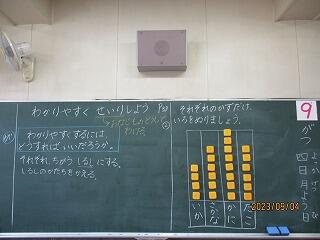 わかりやすく せいりしよう
わかりやすくするには、
どうすればいいだろうか。
それぞれ、ちがう しるしにする。
しるしのかたちをかえる。
それぞれのかずだけ、
いろをぬりましょう。
いか
さかな
かに
たこ
9
がつ
四日
月よう日
2023/09/04